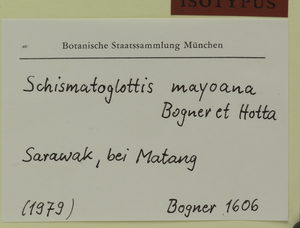 ISOTYPUS
Botanische Staatssammlung München
Schismatoglottis mayoana
Bogner et Hotta
Sarawak, bei Matang
(1979) Bogner 1606